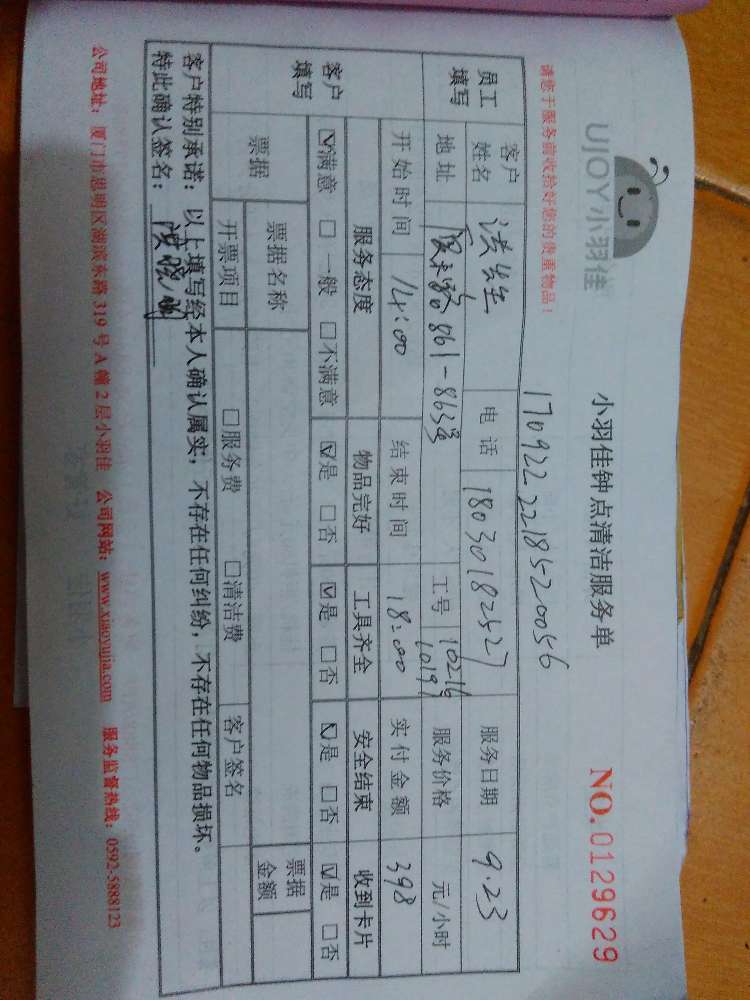 UJOY小羽佳
小羽佳钟点清洁服务单
NO.0129629
请您于服务前收拾好您的贵重物品！
1709222218520056
员工填写
客户姓名 洪先生 电话 18030182527 服务日期 9.23
地址 861-863号 工号 10216 服务价格 元/小时
开始时间 14:00 结束时间 18:00 实付金额 398
客户填写
服务态度 物品完好 工具齐全 安全结束 收到卡片
☑满意 □一般 □不满意 ☑是 □否 ☑是 □否 ☑是 □否 ☑是 □否
票据 票据名称 票据金额
开票项目 □服务费 □清洁费 客户签名
客户特别承诺：以上填写经本人确认属实，不存在任何纠纷，不存在任何物品损坏。
特此确认签名：
公司地址：厦门市思明区湖滨东路319号A幢2层小羽佳 公司网站：www.xiaoyujia.com 服务监督热线：0592-5888123